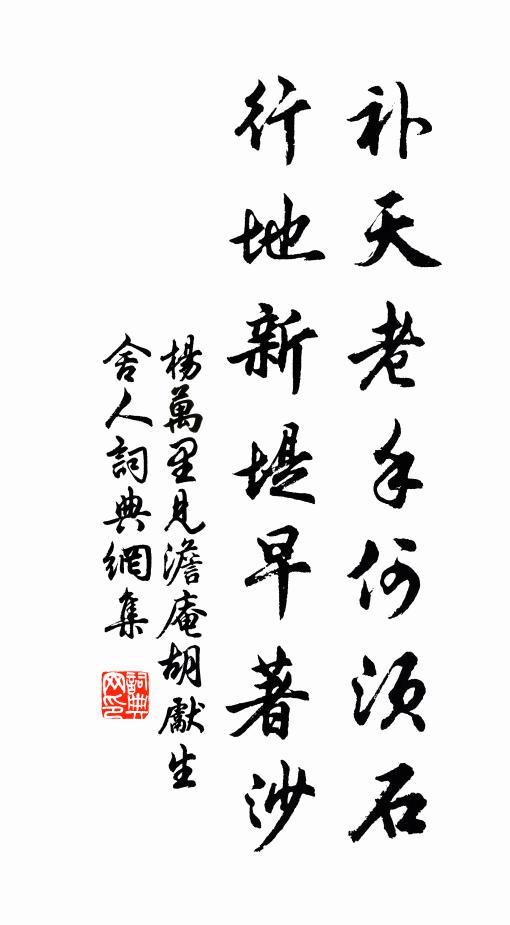 补天老手何须石
行地新堤早著沙
楊萬里見澹庵胡獻生
舍人詞典網集
詞典网印